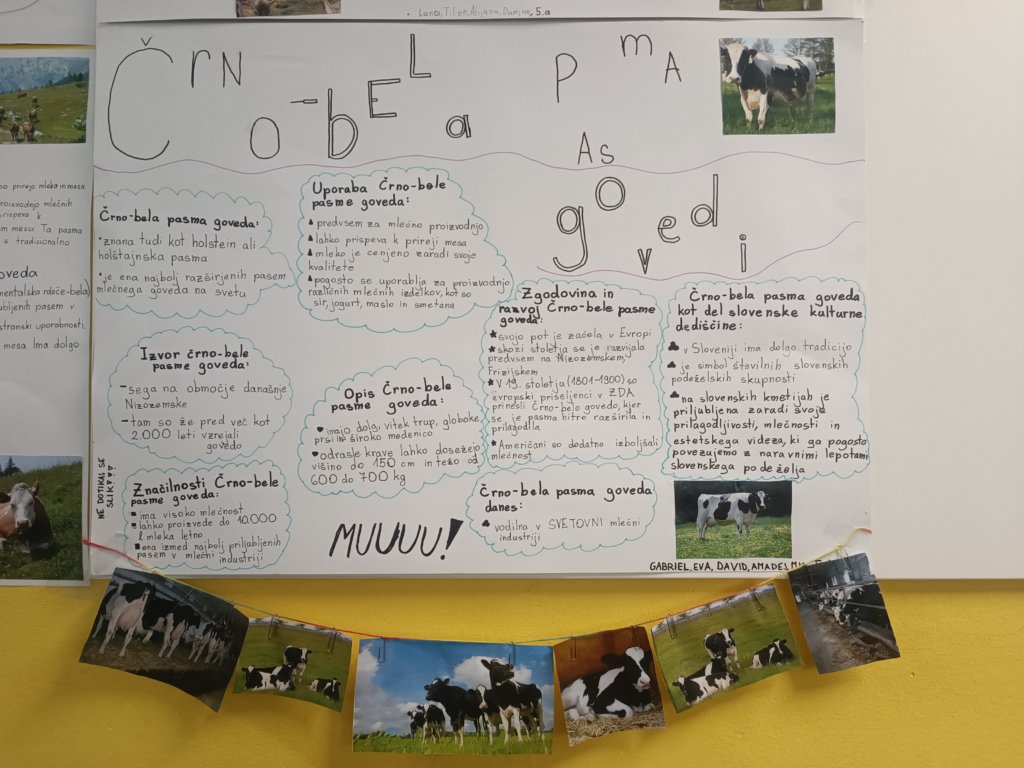 Lana, Tilen, Alijana, Damjan, 5.a
ČrN
o-bELa
PmA
As
govedi
Črno-bela pasma goveda:
• znana tudi kot holstein ali
holštajnska pasma
• je ena najbolj razširjenih pasem
mlečnega goveda na svetu
Uporaba Črno-bele
pasme goveda:
predvsem za mlečno proizvodnjo
lahko prispeva k prireji mesa
mleko je cenjeno zaradi svoje
kvalitete
pogosto se uporablja za proizvodnjo
različnih mlečnih izdelkov, kot so
sir, jogurt, maslo in smetana
Izvor črno-bele
pasme goveda:
- sega na območje današnje
Nizozemske
- tam so že pred več kot
2.000 leti vzrejali
govedo
Opis Črno-bele
pasme goveda:
imajo dolg, vitek trup, globoke
prsi in široko medenico
odrasle krave lahko dosežejo
višino do 150 cm in težo od
600 do 700 kg
Zgodovina in
razvoj Črno-bele pasme
goveda:
★ svojo pot je začela v Evropi
★ skozi stoletja se je razvijala
predvsem na Nizozemskem,
Frizijskem
★ V 19. stoletja (1801-1900) so
evropski priseljenci v ZDA
prinesli Črno-belo govedo, kjer
se je pasma hitro razširila in
prilagodila
★ Američani so dodatno izboljšali
mlečnost
Črno-bela pasma goveda
kot del slovenske kulturne
dediščine:
♣ v Sloveniji ima dolgo tradicijo
♣ je simbol številnih slovenskih
podeželskih skupnosti
♣ na slovenskih kmetijah je
priljubljena zaradi svoje
prilagodljivosti, mlečnosti in
estetskega videza, ki ga pogosto
povezujemo z naravnimi lepotami
slovenskega podeželja
Značilnosti Črno-bele
pasme goveda:
ima visoko mlečnost
lahko proizvede do 10.000
l mleka letno
ena izmed najbolj priljubljenih
pasem v mlečni industriji
Črno-bela pasma goveda
danes:
♣ vodilna v SVETOVNI mlečni
industriji
MUUUU!
NE DOTIKAJ SE
SLIK!!!
GABRIEL, EVA, DAVID, AMADEJ,
prirejo mleka in mesa
roizvodnjo mlečnih
rispeva k
m mesu. Ta pasma
tradicionalno
oveda
mentalska rdeče-bela)
ubljenih pasem v
stranski uporabnosti,
mesa. Ima dolgo